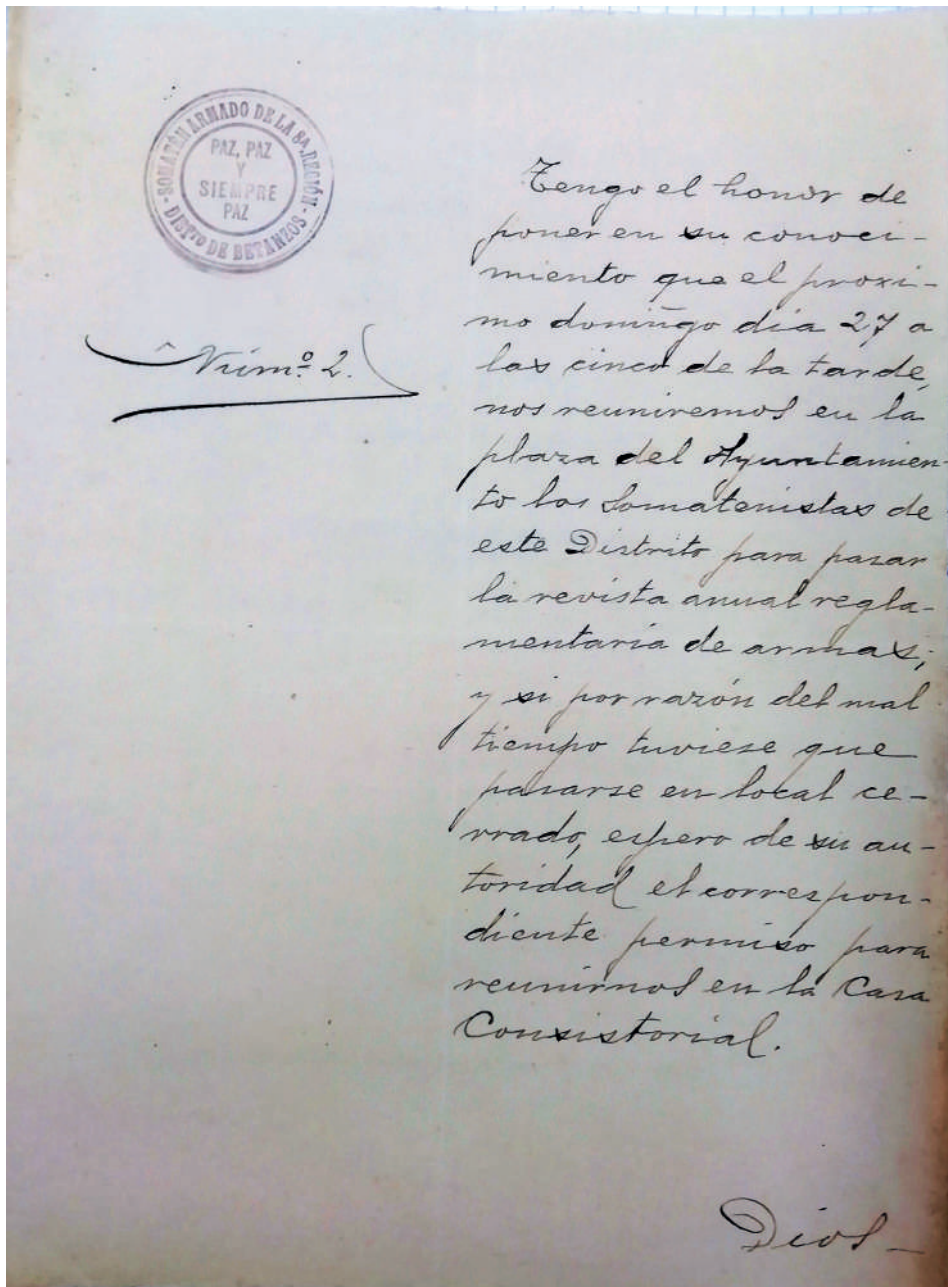 SOMATÉN ARMADO DE LA 8A. REGIÓN
- DISTTO DE BETANZOS -
PAZ, PAZ
Y
SIEMPRE
PAZ
Núm.º 2.
Tengo el honor de
poner en su conoci-
miento que el proxi-
mo domingo dia 27 a
las cinco de la tarde,
nos reuniremos en la
plaza del Ayuntamien-
to los Somatenistas de
este Distrito para pasar
la revista anual regla-
mentaria de armas;
y si por razón del mal
tiempo tuviese que
pasarse en local ce-
rrado, espero de su au-
toridad el correspon-
diente permiso para
reunirnos en la Casa
Consistorial.
Dios-